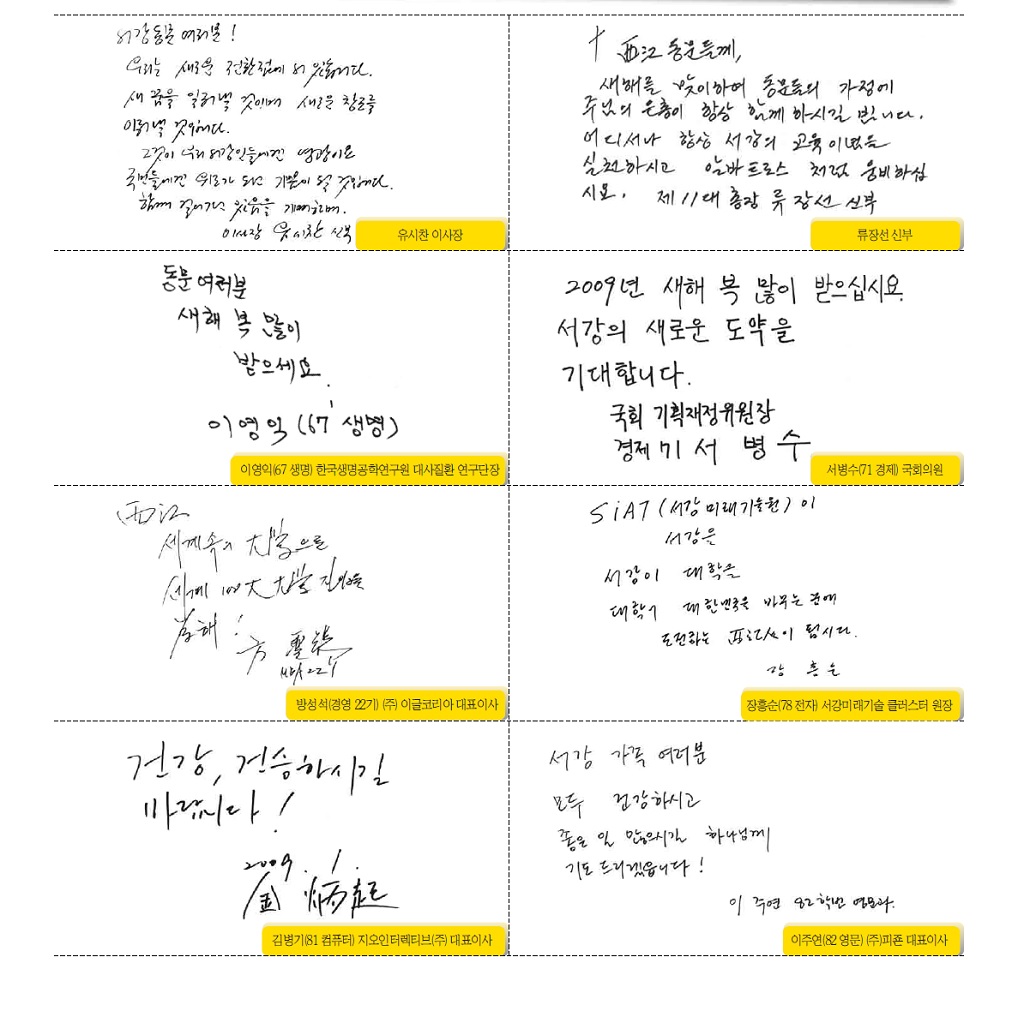 서강동문 여러분!
우리는 새로운 전환점에 서 있습니다.
새 꿈을 일궈낼 것이며 새로운 창조를
이뤄낼 것입니다.
그것이 우리 서강인들에겐 영광이요
국민들에겐 위로가 되고 기쁨이 될 것입니다.
함께 걸어가고 있음을 기억하며.
이사장 유시찬 신부
유시찬 이사장
† 西江 동문들께,
새해를 맞이하여 동문들의 가정에
주님의 은총이 항상 함께 하시길 빕니다.
어디서나 항상 서강의 교육이념을
실천하시고 알바트로스 처럼 웅비하십
시요. 제 11대 총장 류장선 신부
류장선 신부
동문 여러분
새해 복 많이
받으세요.
이영익(67' 생명)
이영익(67 생명) 한국생명공학연구원 대사질환 연구단장
2009년 새해 복 많이 받으십시요.
서강의 새로운 도약을
기대합니다.
국회 기획재정위원장
경제 71 서병수
서병수(71 경제) 국회의원
西江
세계속의 大学으로
세계 100大 大学 진입을
향해!
方 聖錫
방성석(경영 22기) (주) 이글코리아 대표이사
SiAT (서강미래기술원)이
서강을
서강이 대학을
대학이 대한민국을 바꾸는 꿈에
도전하는 西江人이 됩시다.
장 흥 순
장흥순(78 전자) 서강미래기술 클러스터 원장
건강, 건승하시길
바랍니다!
2009. 1.
金 炳起
김병기(81 컴퓨터) 지오인터랙티브(주) 대표이사
서강 가족 여러분
모두 건강하시고
좋은 일 많으시길 하나님께
기도 드리겠습니다!
이주연 82학번 영문과.
이주연(82 영문) (주)피죤 대표이사